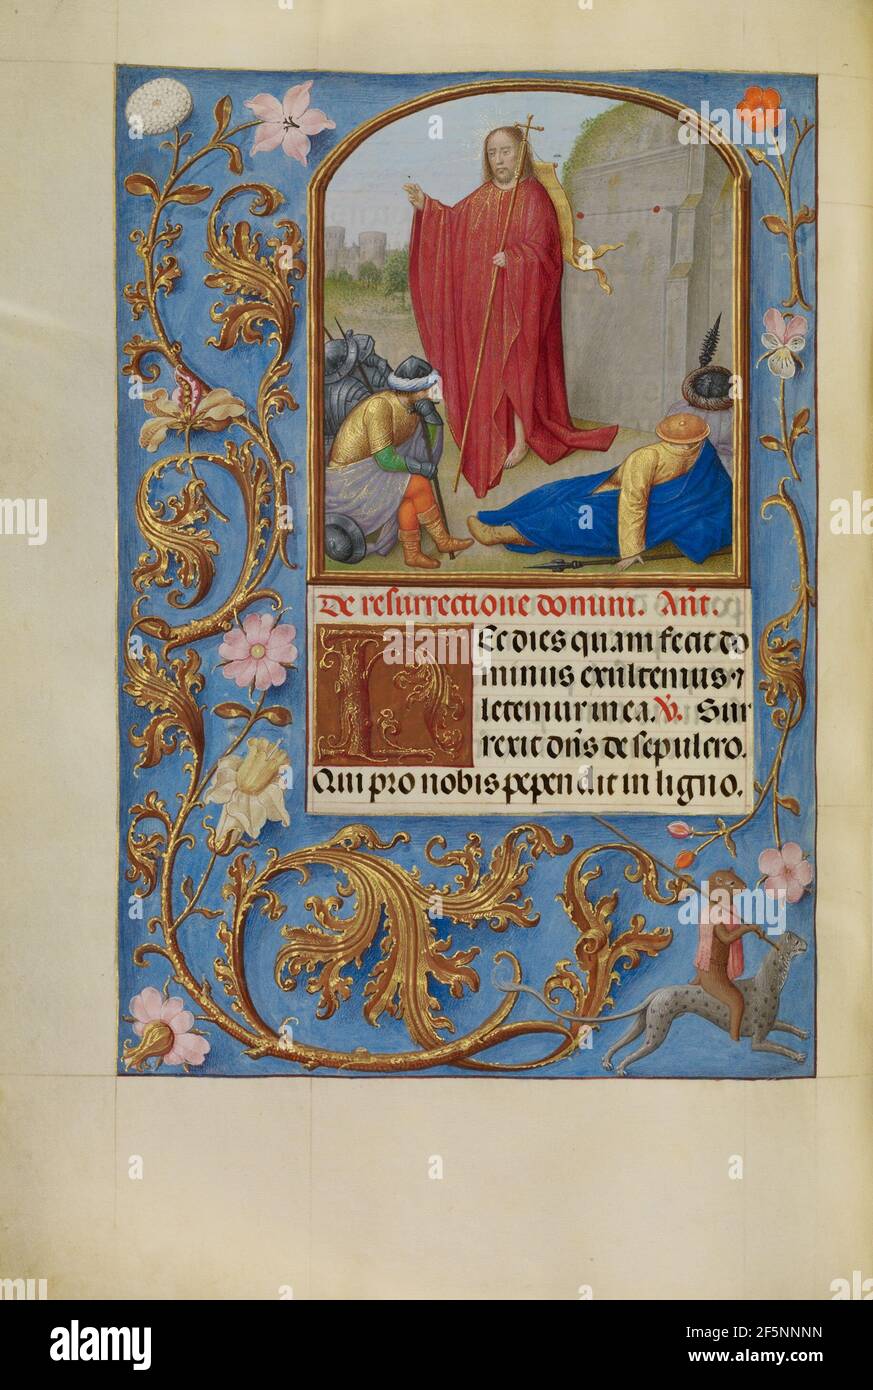 De resurrectione domini. Ant.
Hec dies quam fecit do
minus exultemus ⁊
letemur in ea. V. Sur
rexit dns de sepulcro.
Qui pro nobis pependit in ligno.
alamy
Image ID: 2F5NNNN
www.alamy.com